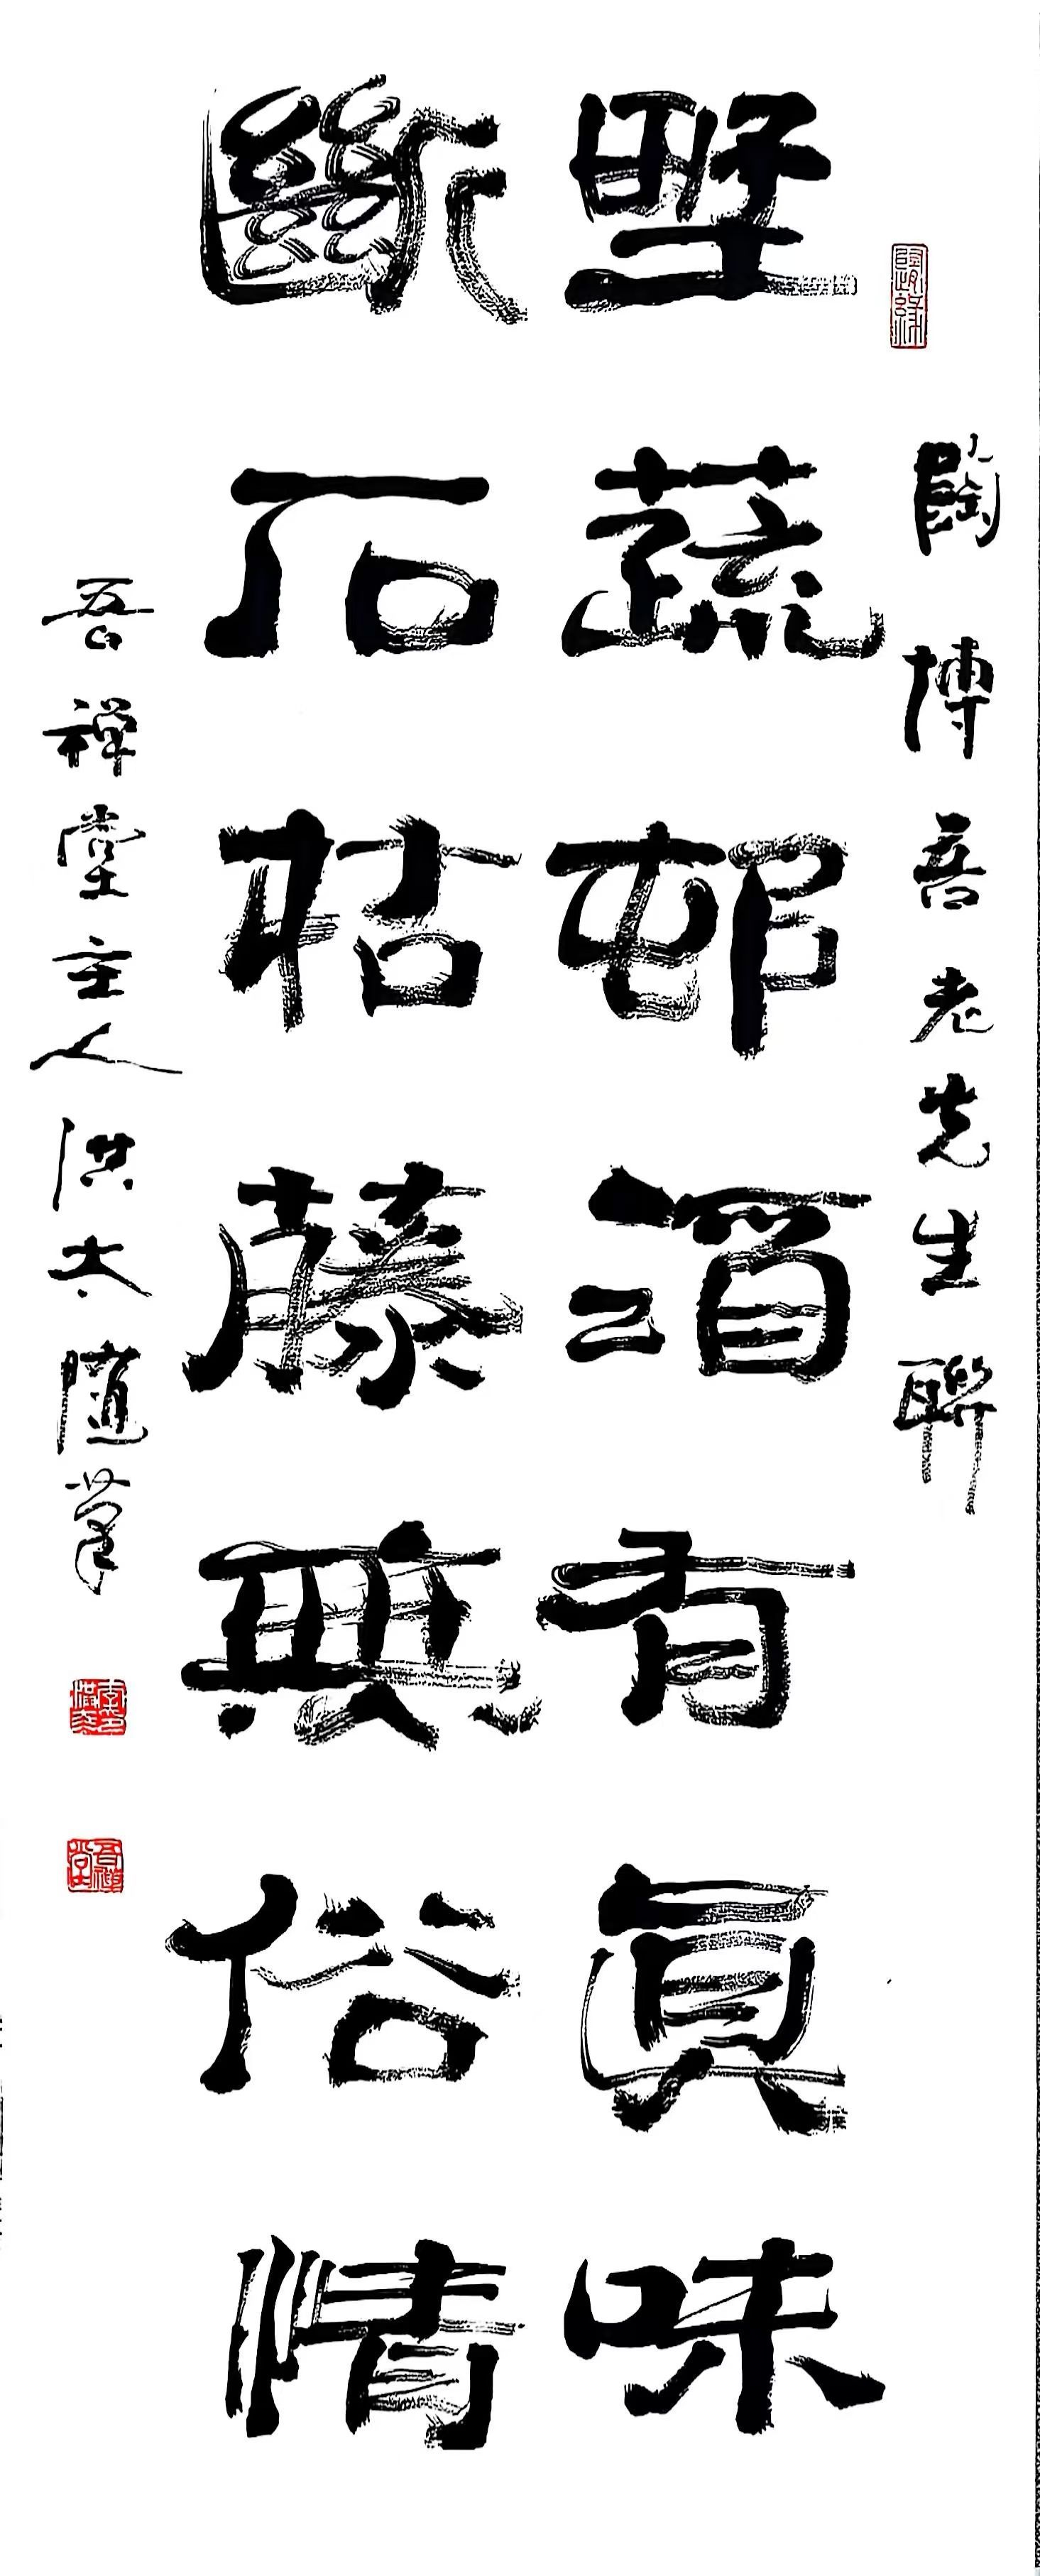 陶博吾老先生聯
野蔬邨酒有眞味
斷石枯藤無俗情
吾禅堂主人洪太随筆